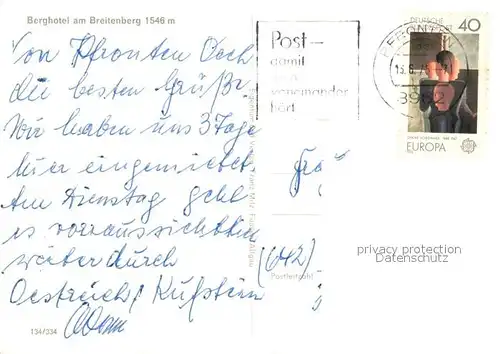 Berghotel am Breitenberg 1546 m
Von Pfronten Euch
die besten Grüße
Wir haben uns 3 Tage
hier eingemietet.
Am Dienstag geht
es voraussichtlich
weiter durch
Oestreich/ Kufstein
134/334
Post –
damit
man
voneinander
hört
PFRONTEN
8962
DEUTSCHE
40
EUROPA
(642)
Postleitzahl
privacy protection
Datenschutz